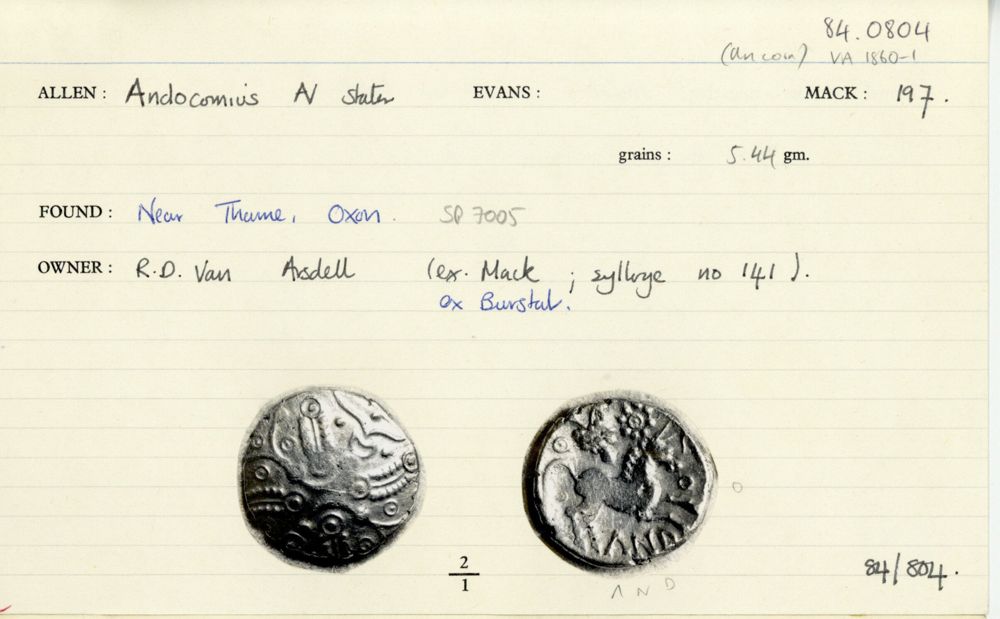 84.0804
(An coin) VA 1860-1
ALLEN : Andocomius AV stater EVANS : MACK : 197.
grains : 5.44 gm.
FOUND : Near Thame, Oxon. SP 7005
OWNER : R.D. Van Arsdell (ex. Mack ; sylloge no 141).
ex Burstal.
O
2
1
84/804.
A N D